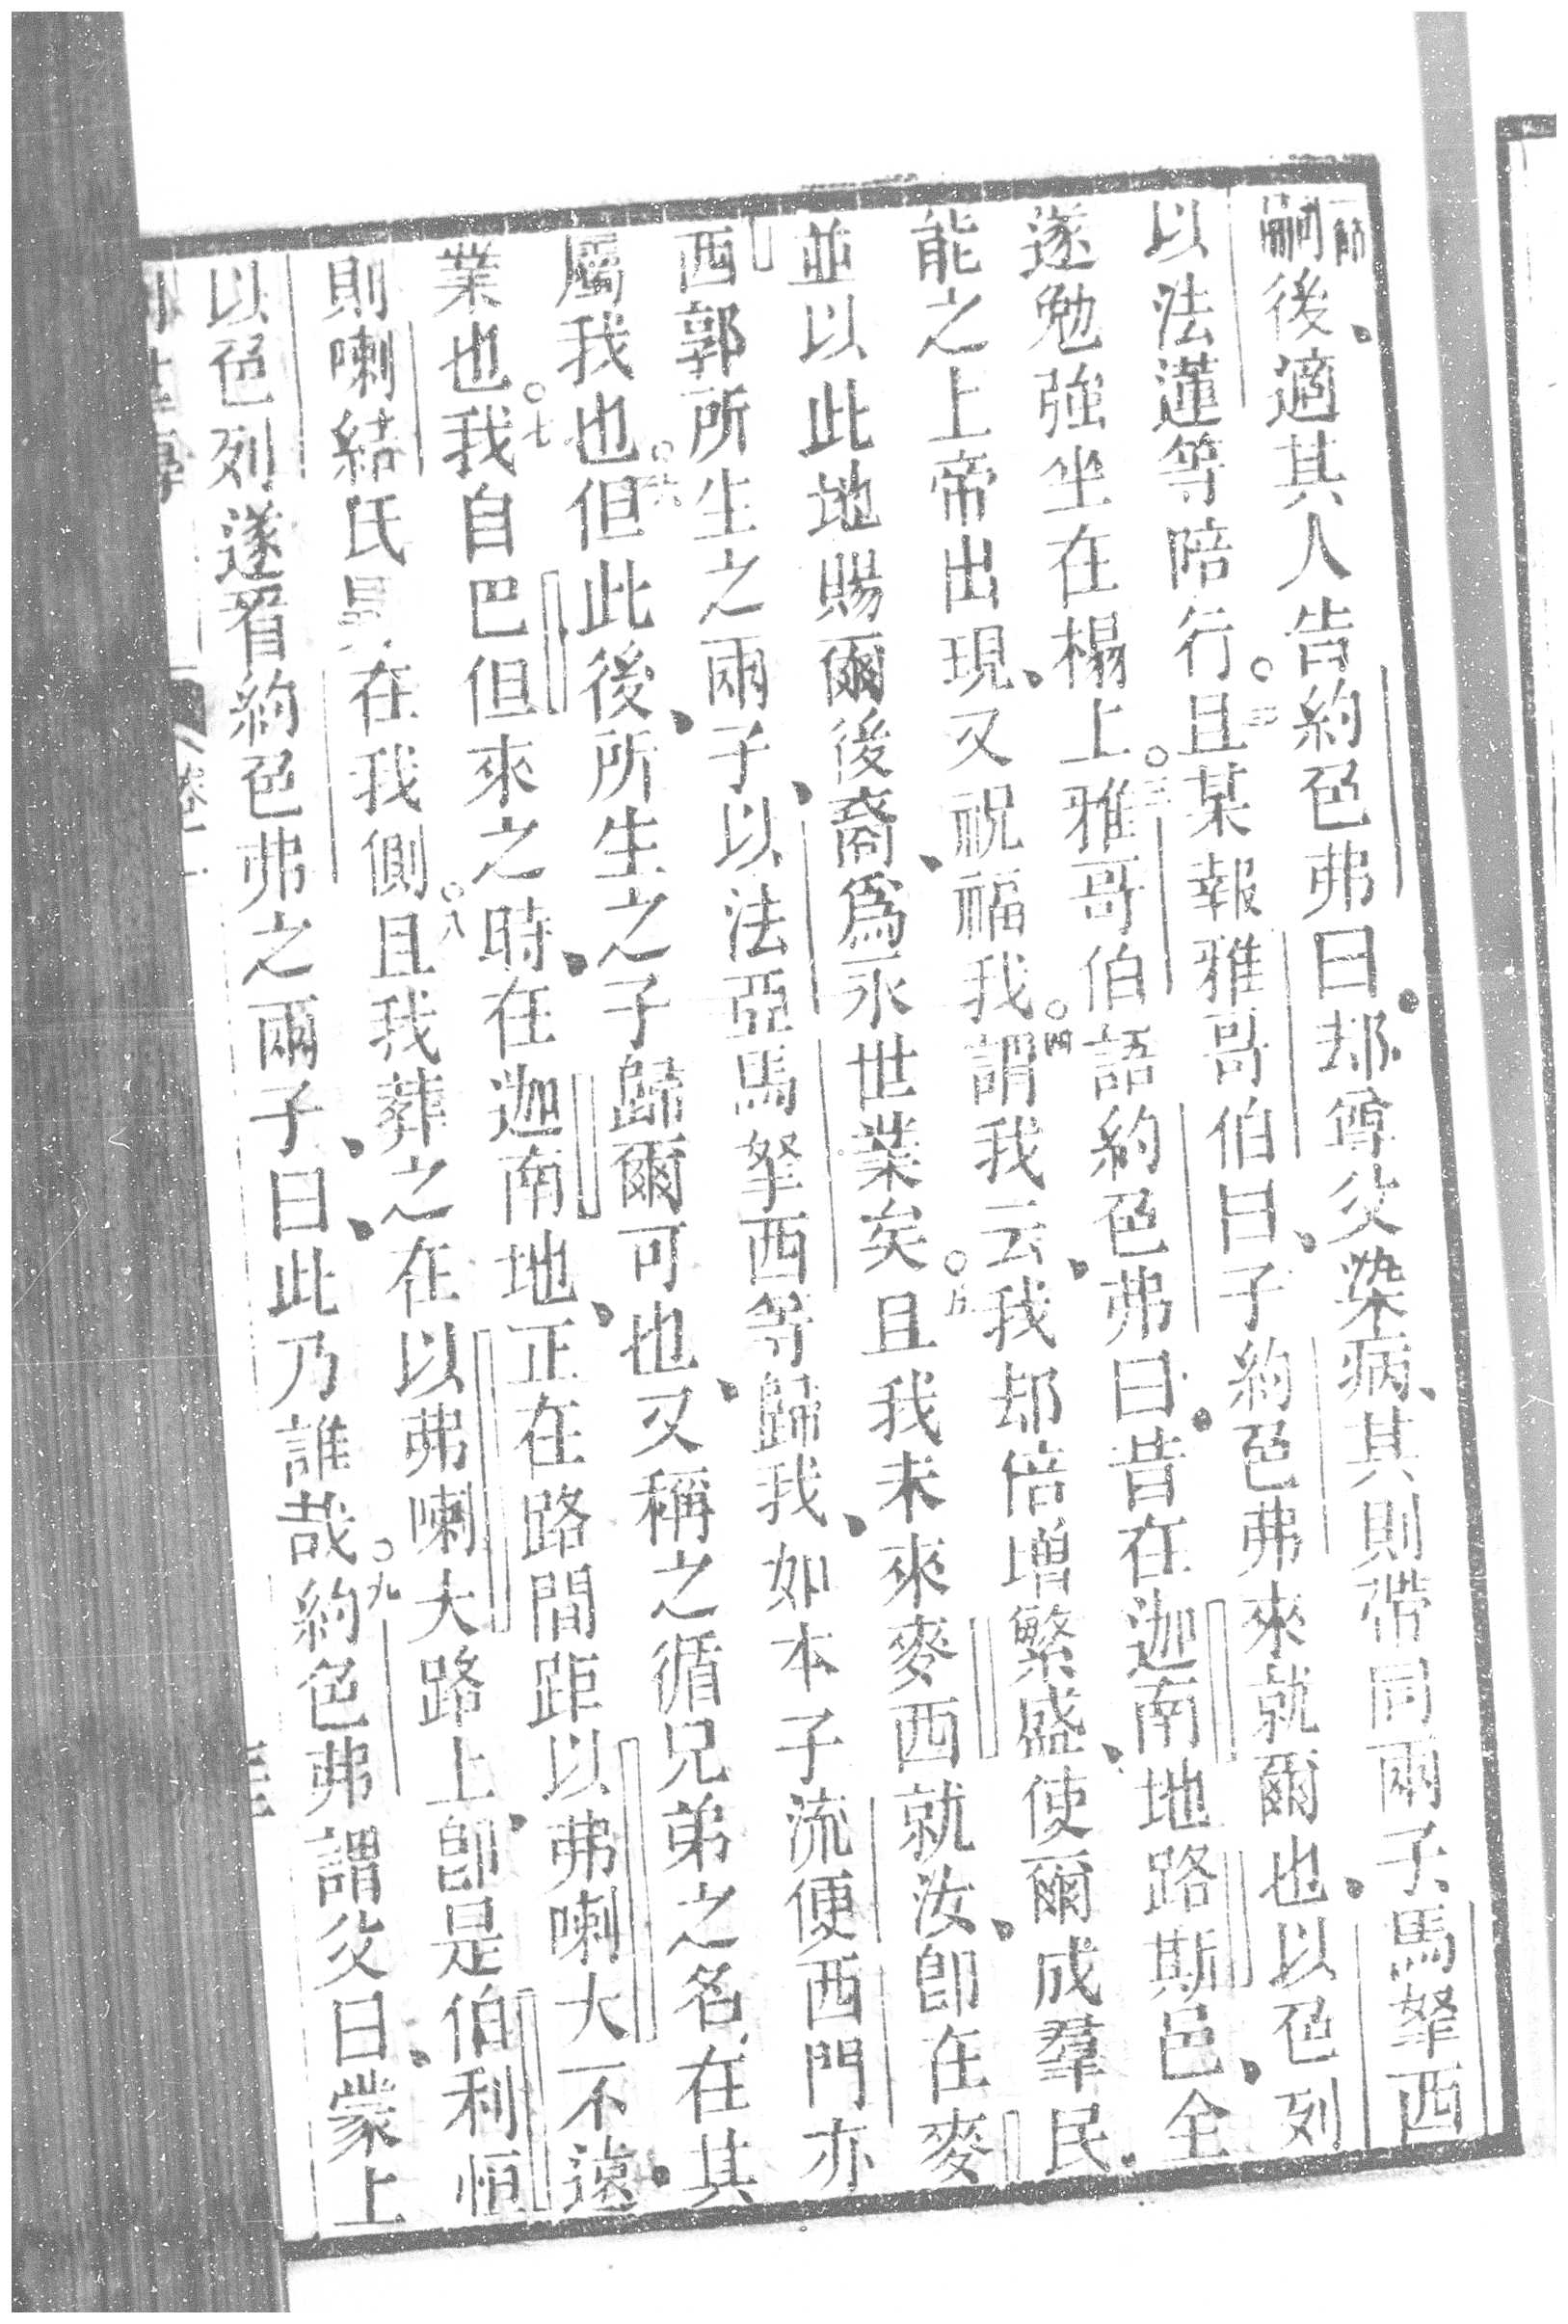 嗣後、適其人告約色弗曰、却尊父染病、其則帶同兩子、馬拏西
以法蓮等陪行。○二且某報雅哥伯曰、子約色弗來就爾也、以色列
遂勉強坐在榻上。○三雅哥伯語約色弗曰、昔在迦南地路斯邑、全
能之上帝出現、又祝福我○四謂我云、我却倍增繁盛、使爾成羣民、
並以此地賜爾後裔、爲永世業矣○五且我未來麥西就汝、卽在麥
西郭所生之兩子、以法亞馬拏西等歸我、如本子流便西門亦
屬我也○六但此後、所生之子歸爾可也、又稱之循兄弟之名、在其
業也○七我自巴但來之時、在迦南地、正在路間距以弗喇大不遠、
則喇結氏在我側○八且我葬之在以弗喇大路上、卽是伯利恒
以色列遂看約色弗之兩子、曰、此乃誰哉○九約色弗謂父曰、蒙上